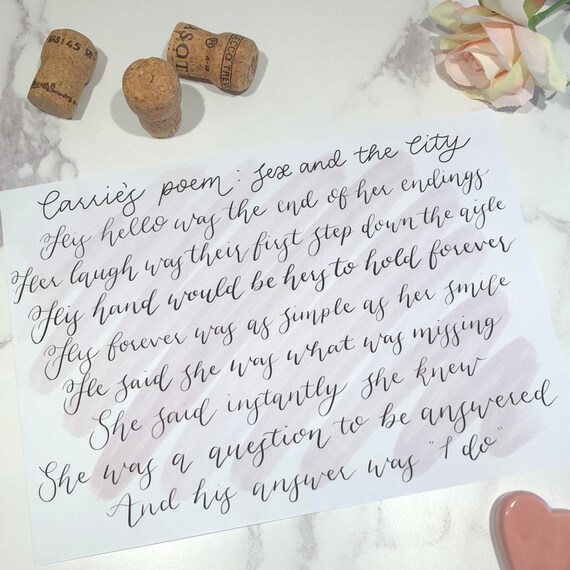 Carrie's poem: Sex and the City
His hello was the end of her endings
Her laugh was their first step down the aisle
His hand would be hers to hold forever
His forever was as simple as her smile
He said she was what was missing
She said instantly she knew
She was a question to be answered
And his answer was "I do"